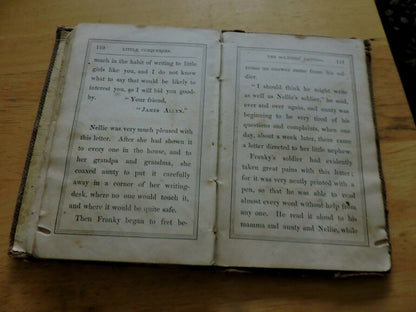 110 LITTLE CONQUERORS.
much in the habit of writing to little
girls like you, and I do not know
what to say that would be likely to
interest you, so I will bid you good-
by. "Your friend,
"JAMES ALLEN."
Nellie was very much pleased with
this letter. After she had shown it
to every one in the house, and to
her grandpa and grandma, she
coaxed aunty to put it carefully
away in a corner of her writing-
desk, where no one would touch it,
and where it would be quite safe.
Then Franky began to fret be-
THE SOLDIERS'
111
from his sol-
dier.
"I should think he might write
as well as Nellie's soldier," he said,
over and over again, and aunty was
beginning to be very tired of his
questions and complaints, when one
day, about a week later, there came
a letter directed to her little nephew.
Franky's soldier had evidently
taken great pains with this letter;
for it was very neatly printed with a
pen, so that he was able to read
almost every word without help from
any one. He read it aloud to his
mamma and aunty and Nellie, while